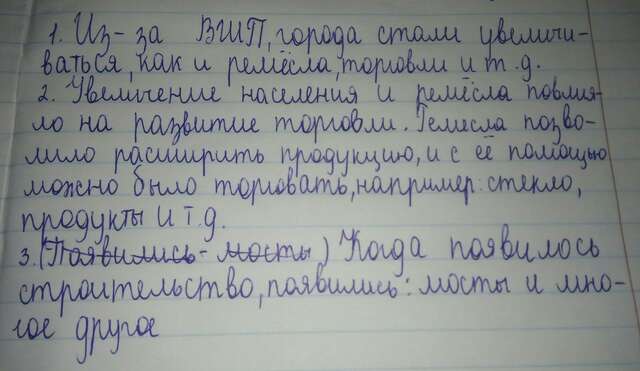 1. Из-за ВШП, города стали увеличи-
ваться, как и ремёсла, торговли и т.д.
2. Увеличение населения и ремёсла повлия-
ло на развитие торговли. Ремисла позво-
лило расширить продукцию, и с её помощью
можно было торговать, например: стекло,
продукты и т.д.
3. (Появились - мосты) Когда появилось
строительство, появились: мосты и мно-
гое другое